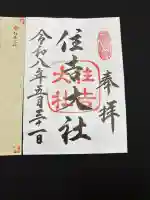 奉拝
住吉大社
住吉
大社
令和八年五月三十一日